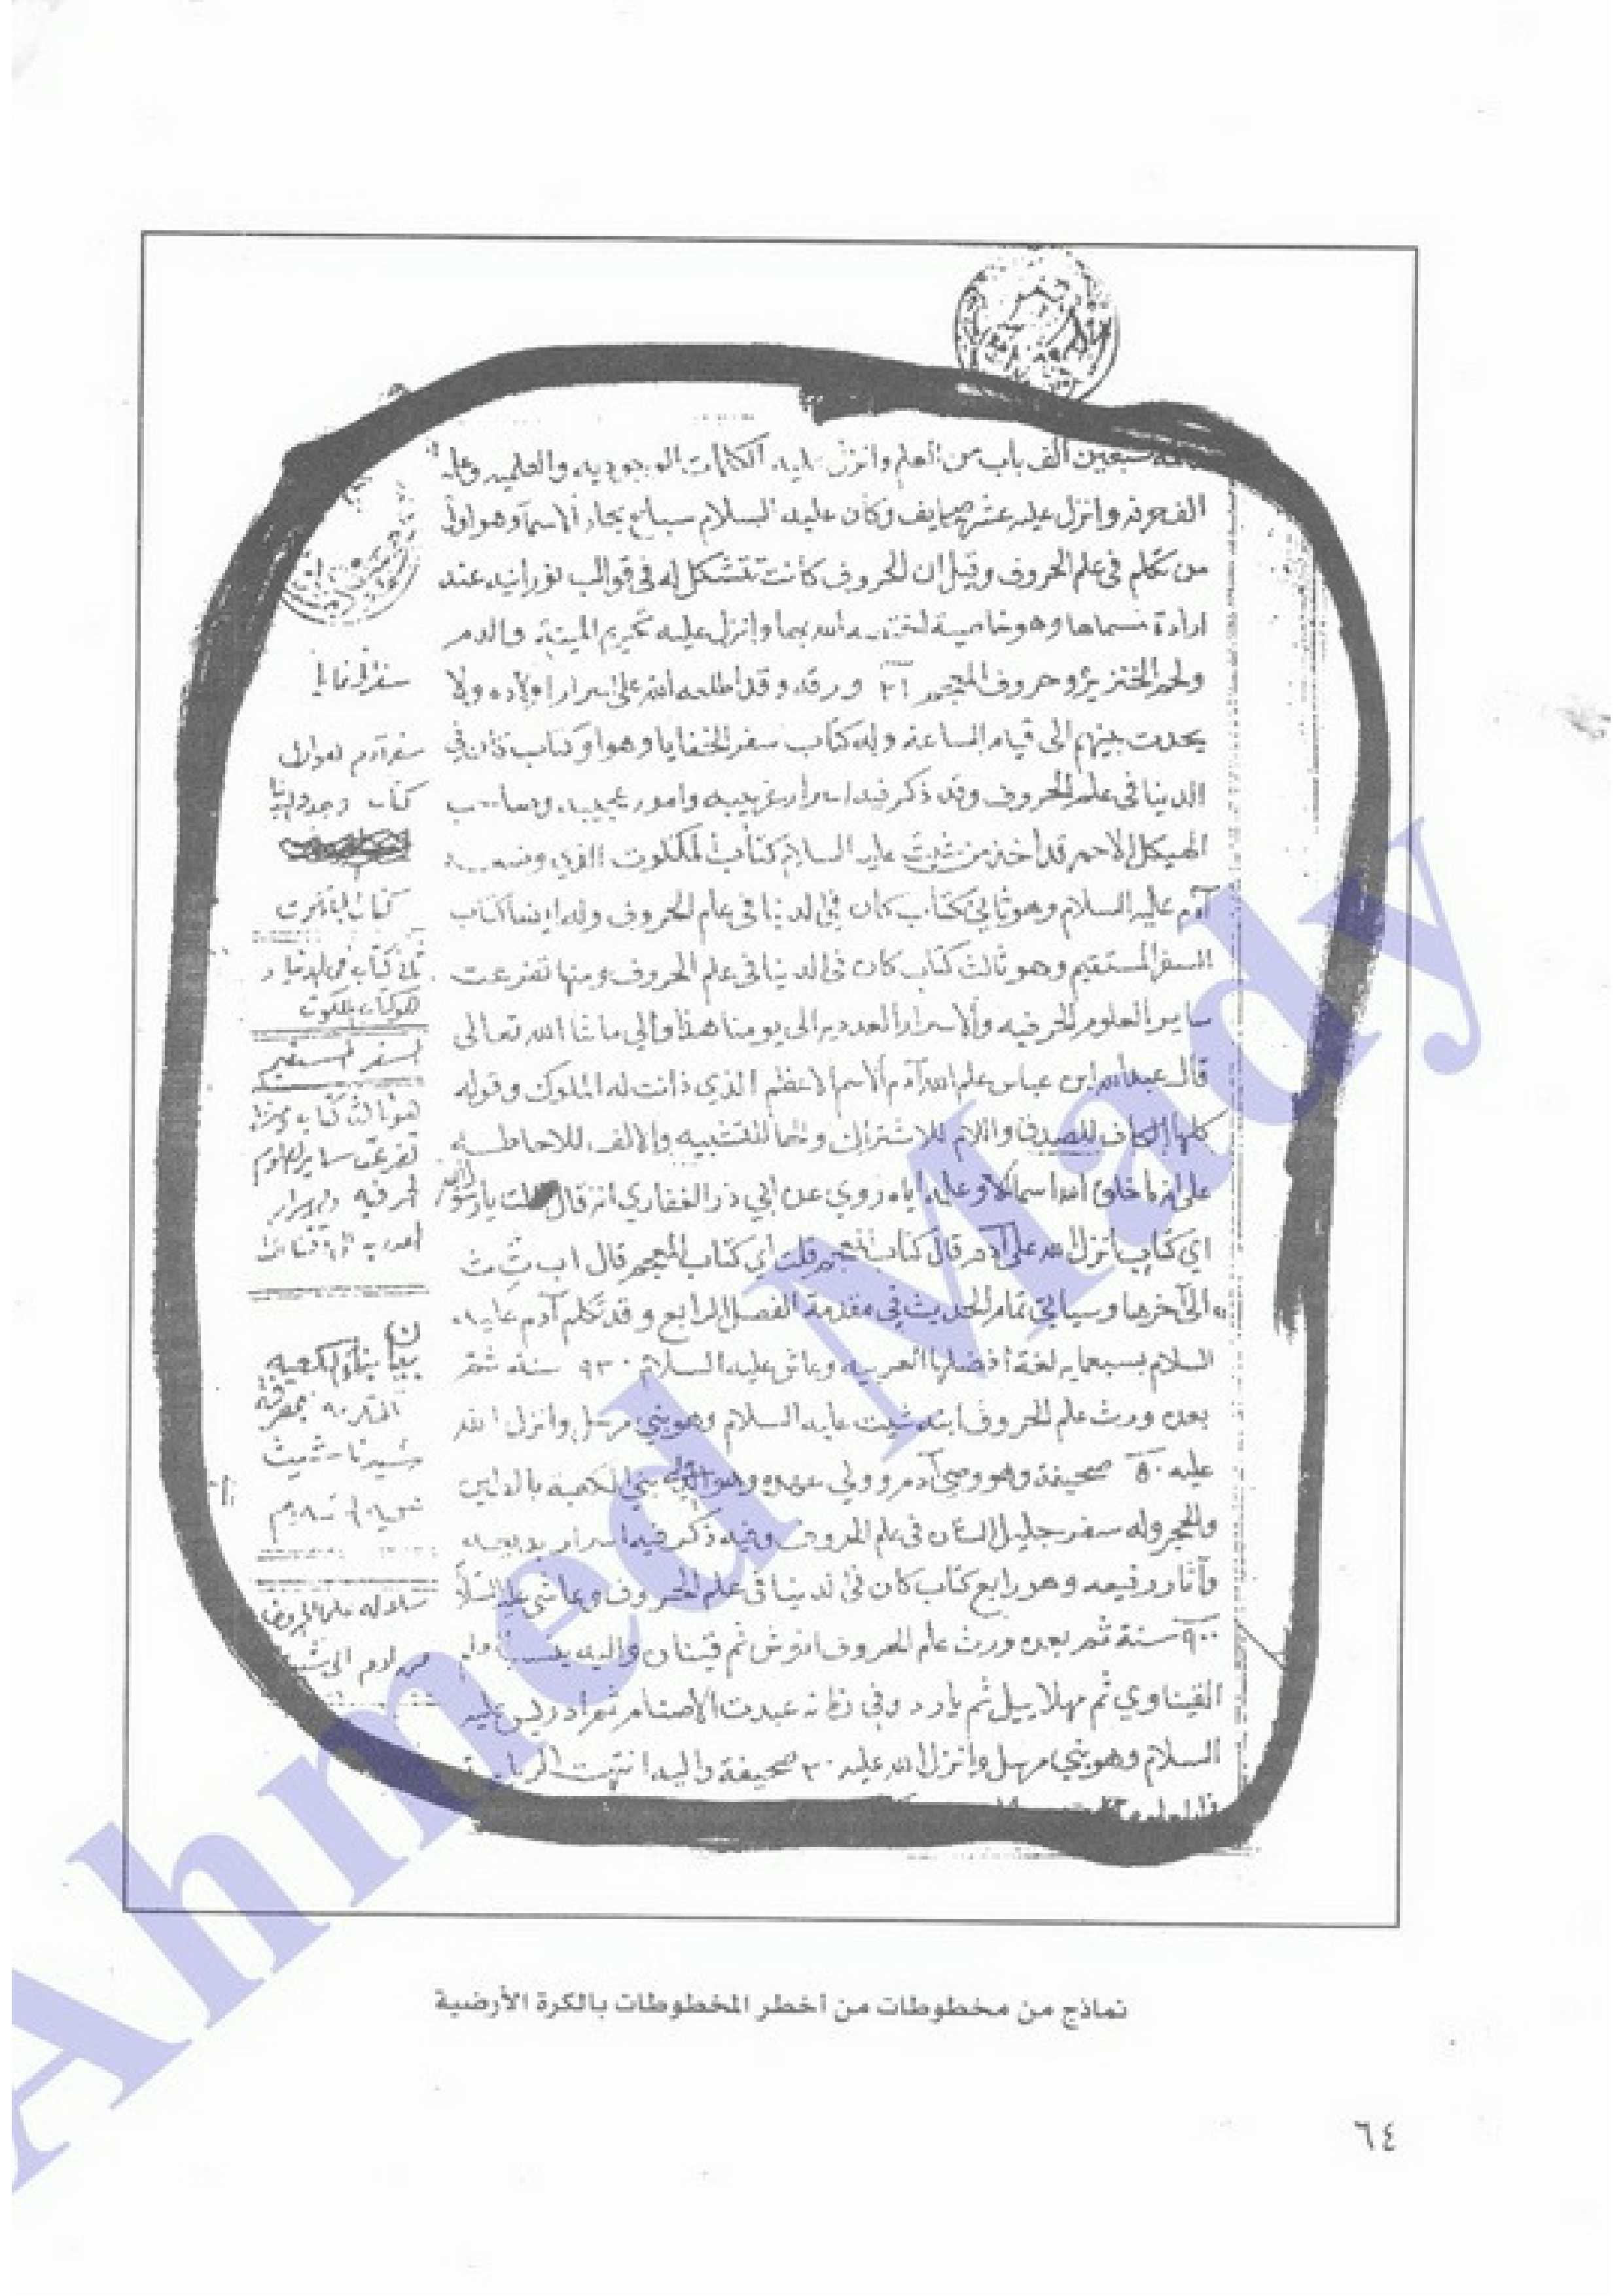 سبعين الف باب من العلم وانزل عليه الكلمات الوجوديه والعلميه وعلمه
الف حرفه وانزل عليه عشر صحايف وكان عليه السلام سباح بحار الاسما وهو اول
من تكلم في علم الحروف وقيل ان الحروف كانت تتشكل له في قوالب نورانيه عند
ارادة مسماها وهو خاصية الله بها وانزل عليه تحريم الميتة والدم
ولحم الخنزير وحروف المعجم ورقه وقد اطلعه الله على اسرار اولاده ولا
يحدث بينهم الى قيام الساعة وله كتاب سفر الخفايا وهو اول كتاب كان في
الدنيا في علم الحروف وقد ذكر فيه اسرار غريبه وامور عجيبه وصاحب
الهيكل الاحمر قد اخذ من شيث عليه السلام كتاب الملكوت الذي وضعه
آدم عليه السلام وهو ثاني كتاب كان في الدنيا في علم الحروف وله ايضا كتاب
السفر المستقيم وهو ثالث كتاب كان في الدنيا في علم الحروف ومنها تفرعت
ساير العلوم الحرفيه والاسرار العدديه الى يومنا هذا والى ما شا الله تعالى
قال عبد الله ابن عباس علم الله آدم الاسم الاعظم الذي دانت له الملوك وقوله
كلها الكاف للصدق واللام للاشتراك والها للتنبيه والالف للاحاطه
على انه ما خلق الله اسما الا وعلمه اياه روي عن ابي ذر الغفاري انه قال قلت يا رسول الله
اي كتاب انزل الله على آدم قال كتاب المعجم قلت اي كتاب المعجم قال ا ب ت ث
الى آخرها وسياتي تمام الحديث في مقدمة الفصل الرابع وقد تكلم آدم عليه
السلام بسبعمايه لغة افضلها العربيه وعاش عليه السلام ٩٣٠ سنة ثم
بعده ورث علم الحروف ابنه شيث عليه السلام وهو نبي مرسل وانزل الله
عليه ٥٠ صحيفة وهو وصي آدم وولي عهده وهو الذي بنى الكعبه بالطين
والحجر وله سفر جليل الشان في علم الحروف وفيه ذكر فيه اسرار بديعه
وآثار رفيعه وهو رابع كتاب كان في الدنيا في علم الحروف وعاش عليه السلام
٩٠٠ سنة ثم بعده ورث علم الحروف انوش ثم قينان واليه ينسب قلم
القيناوي ثم مهلاييل ثم يارد وفي زمانه عبدت الاصنام ثم ادريس عليه
السلام وهو نبي مرسل وانزل الله عليه ٣٠ صحيفة واليه انتهت الرياسة
سفر الخفايا
سفر آدم اول
كتاب وجد
كتاب الملكوت
ثاني كتاب في الدنيا
هو كتاب الملكوت
السفر المستقيم
هو ثالث كتاب
تفرعت ساير العلوم
الحرفيه والاسرار
بيان بناء الكعبه
سيدنا شيث
علم الحروف
من آدم الى شيث
نماذج من مخطوطات من أخطر المخطوطات بالكرة الأرضية
٦٤
Ahmed Mady